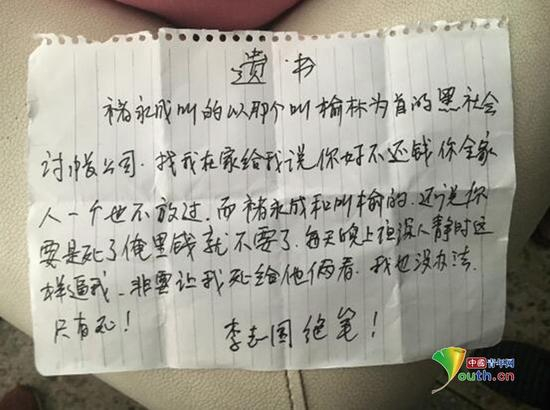 遗书
褚永成叫的以那个叫榆林为首的黑社会
讨帐公司.找我在家给我说你好不还钱你全家
人一个也不放过.而褚永成和叫榆的.还说你
要是死了俺里钱就不要了.每天晚上在没人静时这
样逼我.非要让我死给他俩看.我也没办法.
只有死!
李志国绝笔!
中國青年网
Youth.cn